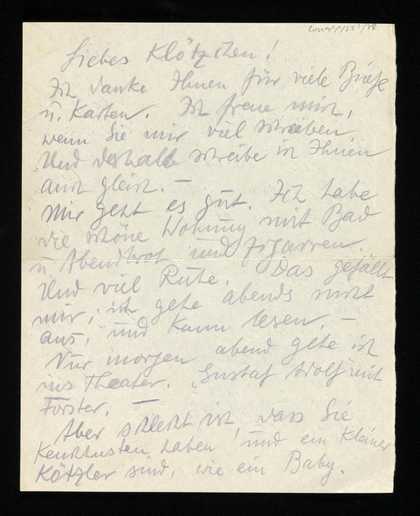 Liebes Klötzchen!
Ich danke Ihnen für viele Briefe
u. Karten. Ich freue mich,
wenn Sie mir viel schreiben
Und deshalb schreibe ich Ihnen
auch gleich. —
Mir geht es gut. Ich habe
die schöne Wohnung mit Bad
u. Abendbrot und Zigarren.
Und viel Ruhe. Das gefällt
mir, ich gehe abends nicht
aus, und kann lesen. —
Nur morgen abend gehe ich
ins Theater. Gustaf mit
Forster. —
Aber schlecht ist, dass Sie
Keuchhusten haben und ein kleiner
Kötzler sind, wie ein Baby.